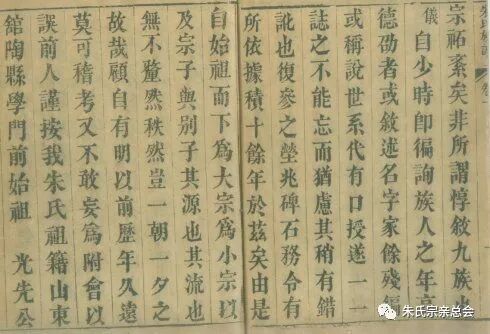 宗祐紊矣非所謂惇敘九族
儀自少時即徧詢族人之年
德劭者或敘述名字家餘殘
或稱說世系代有口授遂一一
誌之不能忘而猶慮其稍有錯
訛也復參之塋兆碑石務令有
所依據積十餘年於茲矣由是
自始祖而下爲大宗爲小宗以
及宗子與別子其源也其流也
無不釐然秩然豈一朝一夕之
故哉顧自有明以前歷年久遠
莫可稽考又不敢妄爲附會以
誤前人謹按我朱氏祖籍山東
館陶縣學門前始祖 光先公
朱氏宗亲总会